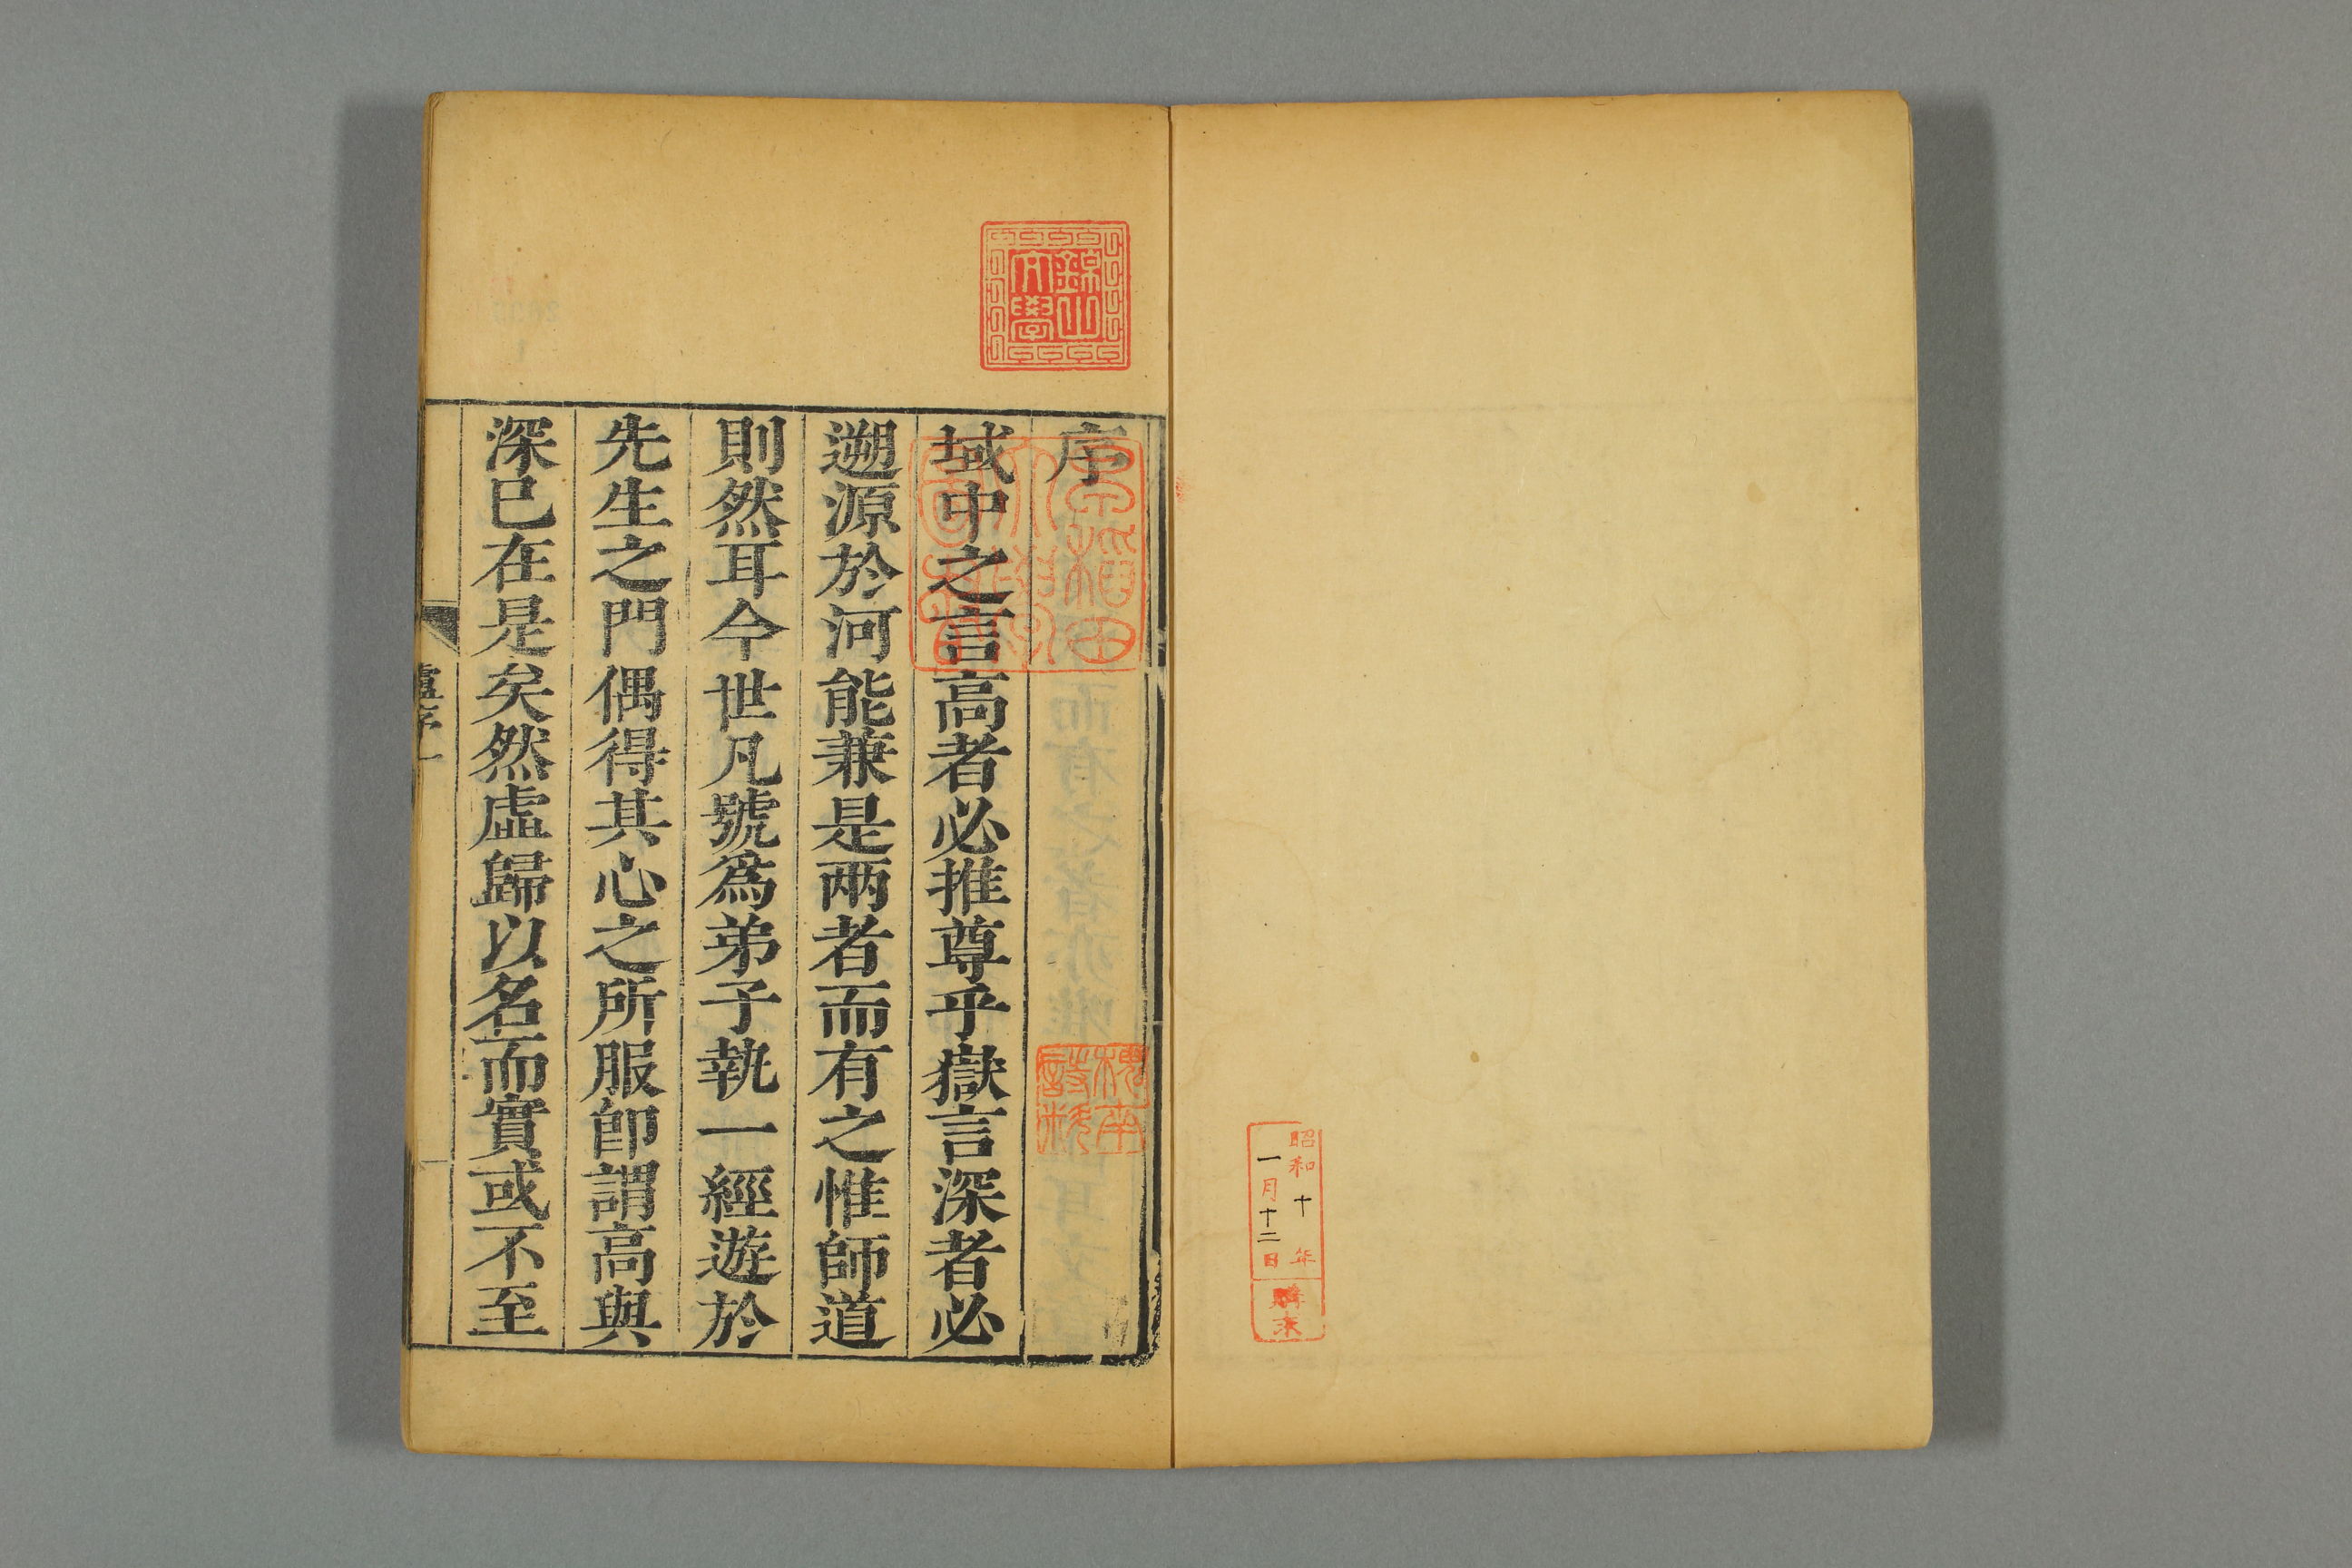 昭和十年
一月十二日
購求
錦山
文學
序
早稻田
大學
圖書
域中之言高者必推尊乎嶽言深者必
遡源於河能兼是兩者而有之惟師道
則然耳今世凡號爲弟子執一經遊於
先生之門偶得其心之所服卽謂高與
深已在是矣然虛歸以名而實或不至
序一